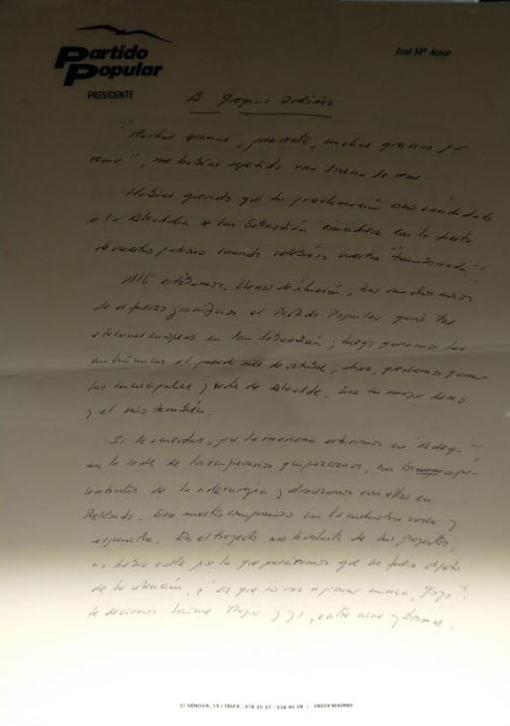 Partido
Popular
José Mª Aznar
PRESIDENTE
A Gregorio Ordóñez
"Muchas gracias, presidente, muchas gracias por
venir", me habías repetido una docena de veces
Habías querido que tu proclamación como candidato
a la Alcaldía de San Sebastián coincidiera con la fiesta
de vuestro patrono cuando celebráis vuestra "tamborrada"
Allí estábamos, llenos de ilusión, tras muchos años
de esfuerzo y el Partido Popular ganó las
elecciones europeas en San Sebastián; luego ganamos las
autonómicas el pasado mes de octubre, ahora, queríamos ganar
las municipales y de Alcalde. Era tu mejor deseo
y el mío también.
Si te acuerdas, por la mañana estuvimos en "Adegi"
en la sede de los empresarios guipuzcoanos, con
de la siderurgia y almorzamos con ellos en
. Era nuestro compromiso con la industria vasca y
española. En el trayecto me hablaste de tus proyectos;
no había calle por la que pasáramos que no fuera objeto
de tu atención, ¿es que no vas a parar nunca, Goyo?
te decíamos Jaime Mayor y yo, entre risas y bromas.
C/ GÉNOVA, 13 / TELFS. 319 20 27 - 319 40 08 / 28004 MADRID